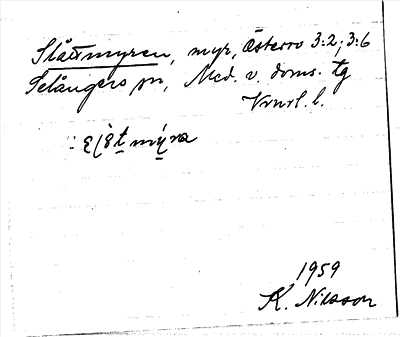 Slåttmyren, myr, Österro 3:2; 3:6
Selångers sn, Med. v. doms. tg
Vrnrl. l.
1959
K. Nilsson